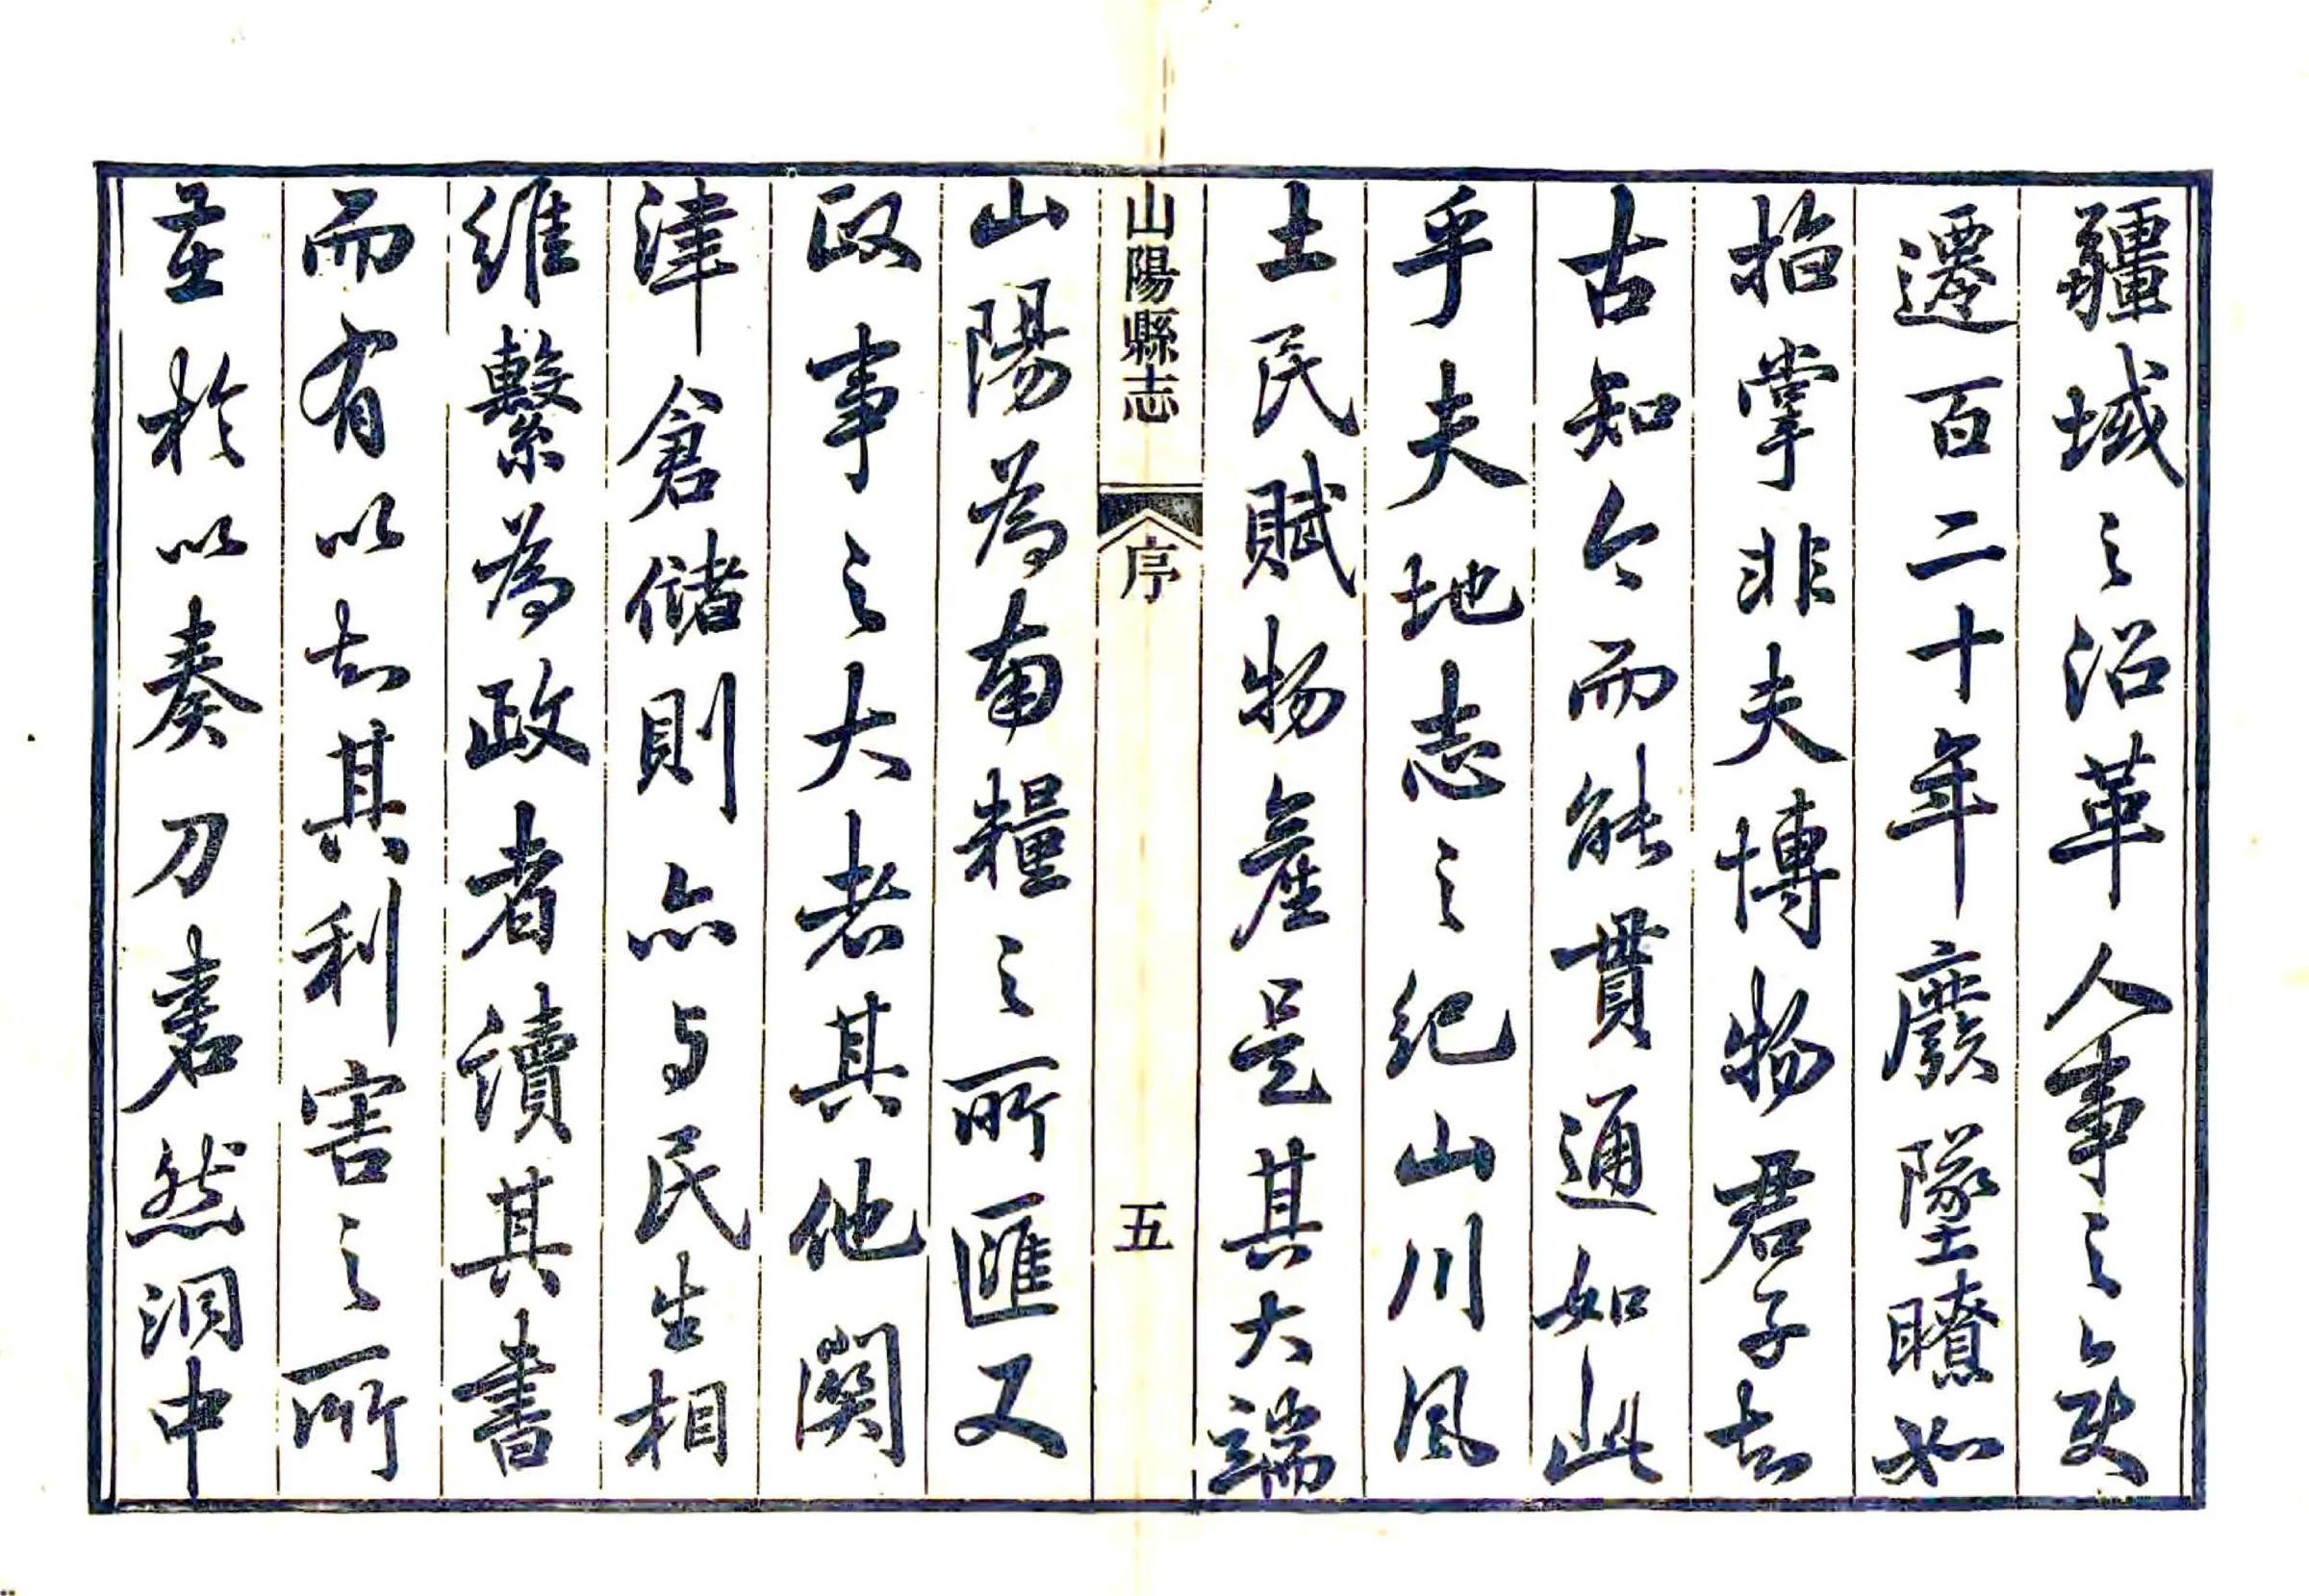 疆域之沿革人事之變
遷百二十年廢墜瞭如
指掌非夫博物君子知
古知今而能貫通如此
乎夫地志之紀山川風
土民賦物產是其大端
山陽縣志 序 五
山陽為南糧之所匯又
政事之大者其他關
津倉儲則亦与民生相
維繫為政者讀其書
而有以知其利害之所
在於以奏刀砉然洞中